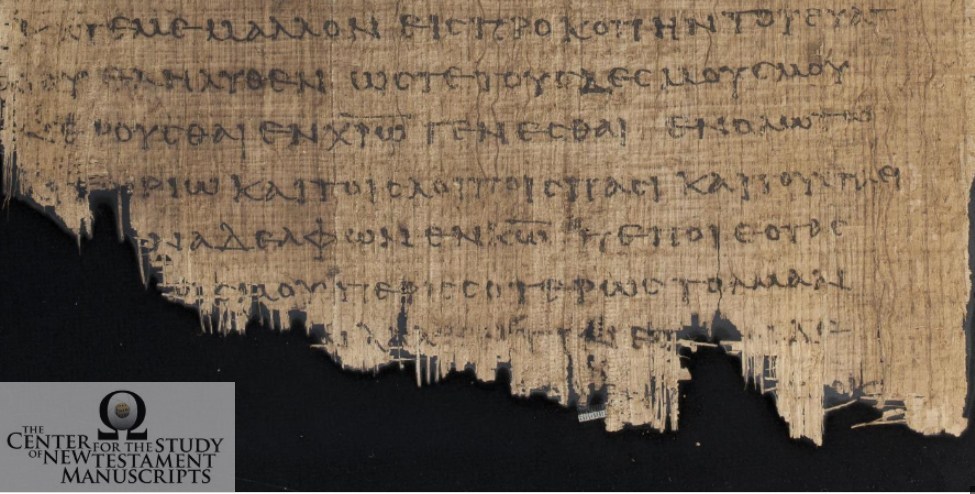 ΚΑΤ ΕΜΕ ΜΑΛΛΟΝ ΕΙϹ ΠΡΟΚΟΠΗΝ ΤΟΥ ΕΥΑΓ
ΟΥ ΕΛΗΛΥΘΕΝ ΩϹΤΕ ΤΟΥϹ ΔΕϹΜΟΥϹ ΜΟΥ
ΝΕΡΟΥϹΘΑΙ ΕΝ Χ̅Ρ̅Ω̅ ΓΕΝΕϹΘΑΙ ΕΝ ΟΛΩ ΤΩ
ΡΙΩ ΚΑΙ ΤΟΙϹ ΛΟΙΠΟΙϹ ΠΑϹΙ ΚΑΙ ΤΟΥϹ
Ν ΑΔΕΛΦΩΝ ΕΝ Κ̅Ω̅ ΠΕΠΟΙΘΟΤΑϹ
ΜΟΥ ΠΕΡΙϹϹΟΤΕΡΩϹ ΤΟΛΜΑΝ
THE
CENTER FOR THE STUDY
OF NEW TESTAMENT
MANUSCRIPTS